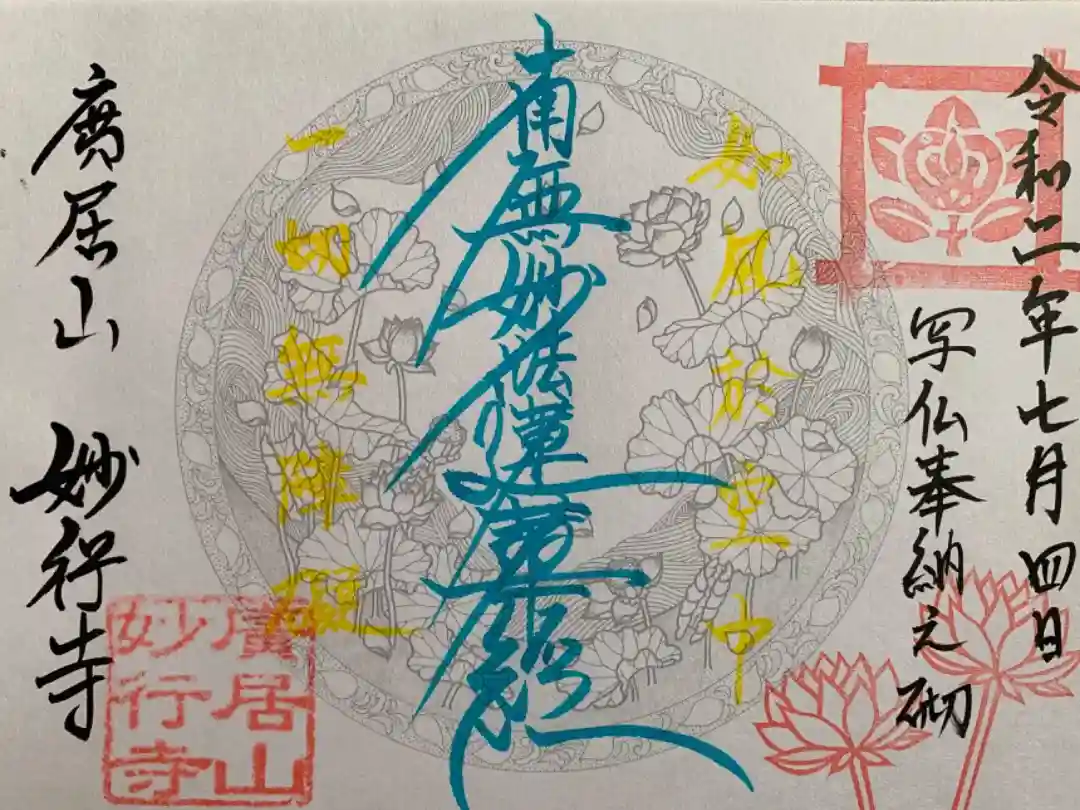 令和二年七月四日
写仏奉納之砌
如風於空中
南無妙法蓮華経
一切無障礙
廣居山 妙行寺
廣居山
妙行寺